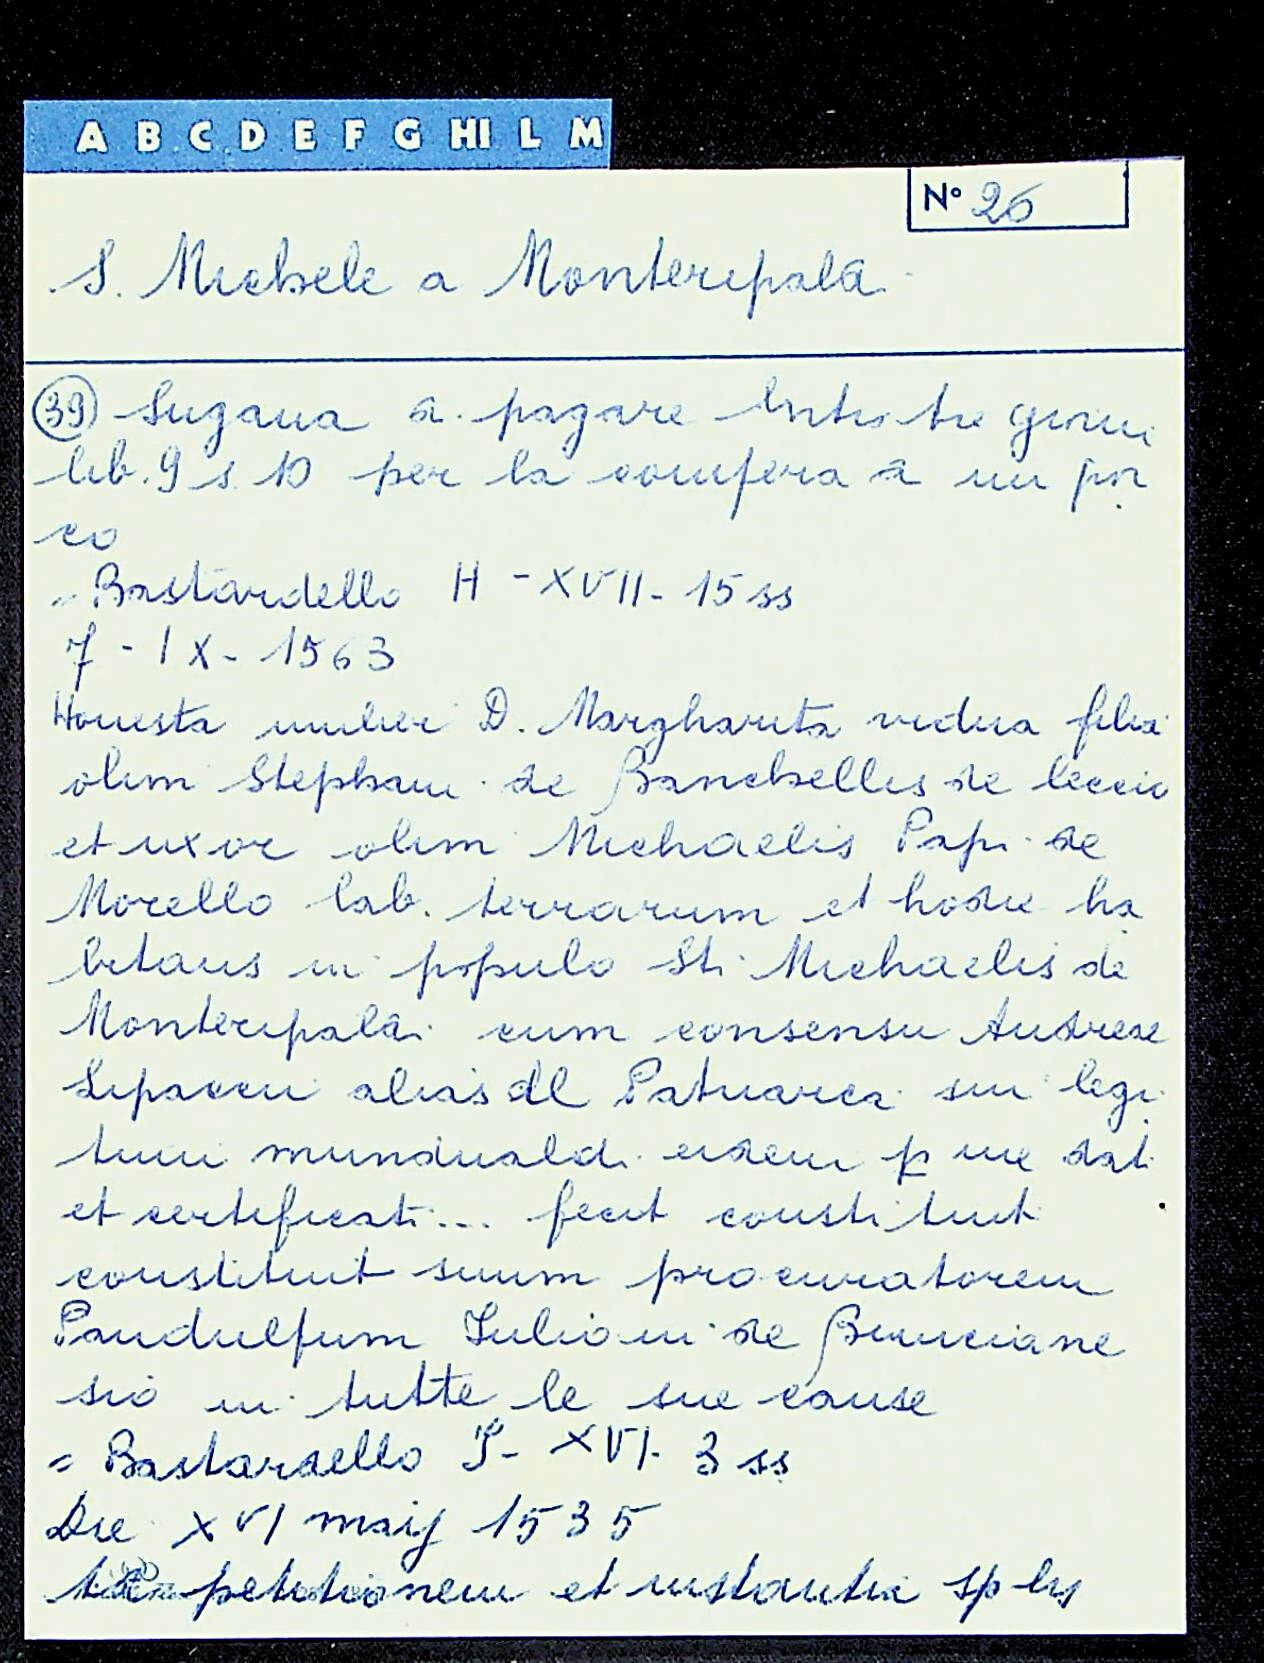 A B C D E F G HI L M
N° 26
S. Michele a Monteripaldi
39 Sugana a pagare entro tre giorni
lib. 9 s. 10 per la compera di un por
co
= Bastardello H - XVII - 15 ss
7 - IX - 1563
Honesta mulier D. Margharita vidua filia
olim Stephani de Banchellis de leccio
et uxor olim Michaelis Papi de
Morello lab. terrarum et hodie ha
bitans in populo Sti Michaelis de
Monteripaldi cum consensu Andreae
alias del Patriarca sui legi
timi mundualdi eidem p me dati
et certificati... fecit constituit
constituit suum procuratorem
Pandulfum Juliani de
in tutte le sue cause
= Bastardello I - XVI - 3 ss
Die XVI maij 1535
petitionem et instantia